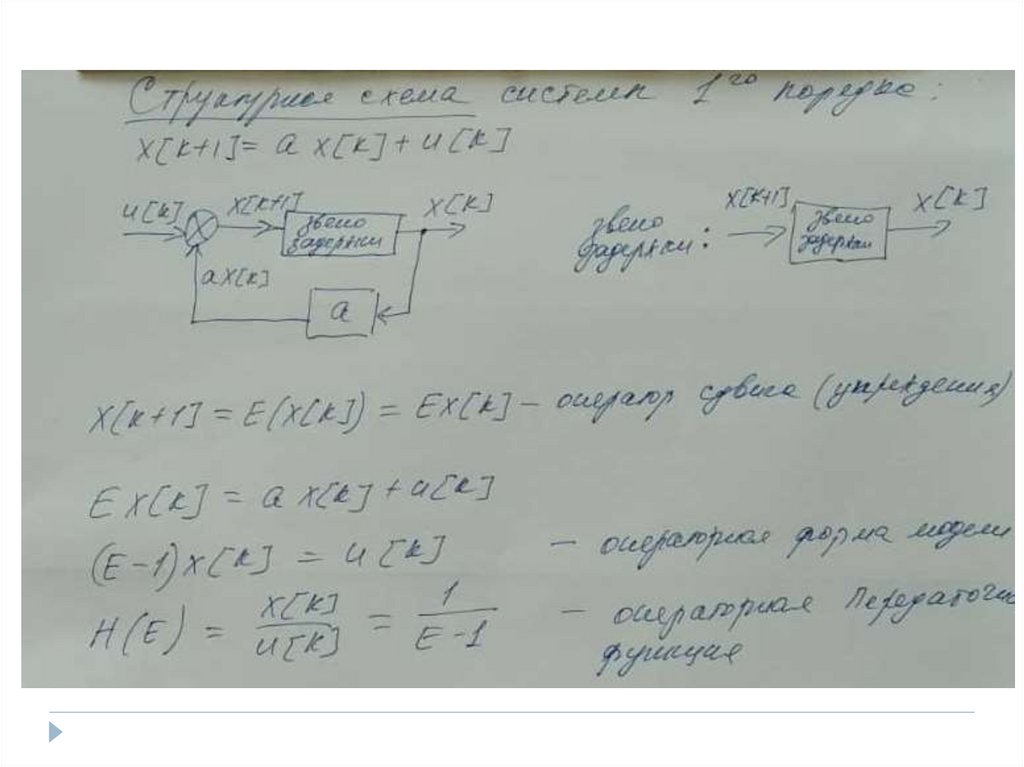 Структурная схема системы 1го порядка:
x[k+1]= a x[k]+u[k]
u[k]
x[k+1]
звено
задержки
x[k]
ax[k]
a
звено
задержки:
x[k+1]
звено
задержки
x[k]
x[k+1] = E(x[k]) = Ex[k] – оператор сдвига (упреждения)
Ex[k] = a x[k]+u[k]
(E-1)x[k] = u[k] – операторная форма модели
H(E) = x[k]/u[k] = 1/E-1 – операторная Передаточн
функция